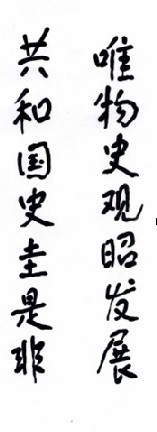 唯物史观昭发展
共和国史圭是非